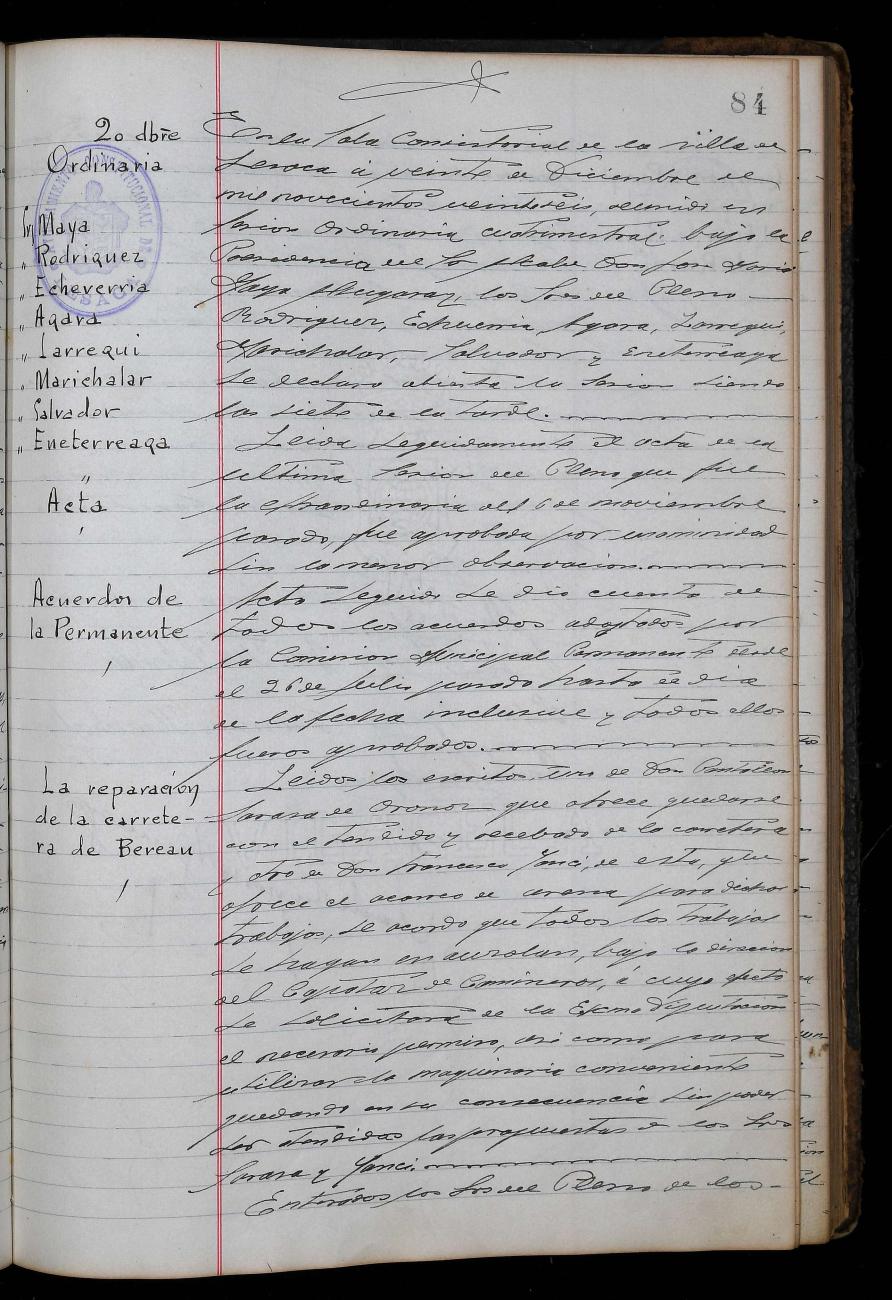 84
20 dbre
Ordinaria
Sr. Maya
" Rodriguez
" Echeverria
" Agara
" Larregui
" Marichalar
" Salvador
" Eneterreaga
"
Acta
Acuerdos de
la Permanente
La reparación
de la carrete-
ra de Bereau
En la Sala Consistorial de la villa de
Lesaca á veinte de Diciembre de
mil novecientos veintiseis, reunido en
sesion Ordinaria cuatrimestral bajo la
Presidencia del Sr Alcalde Don
Maya los Sres del Pleno
Rodriguez, Echeverria, Agara, Larregui,
Marichalar, Salvador y Eneterreaga
se declaro abierta la sesion siendo
las siete de la tarde.
Leida seguidamente el acta de la
ultima sesion del Pleno que fue
la extraordinaria del 6 de noviembre
pasado, fue aprobada por unanimidad
sin la menor observacion.
Acto seguido se dio cuenta de
todos los acuerdos adoptados por
la Comision Municipal Permanente desde
el 26 de Julio pasado hasta el dia
de la fecha inclusive y todos ellos
fueros aprobados.
Leidos los escritos uno de Don
Sarasa de Oronoz que ofrece quedarse
con el tendido y recebado de la carretera
y otro de Don Francisco Yanci, de esta, que
ofrece el acarreo de arena para dichos
trabajos, se acordo que todos los trabajos
se hagan en auzolan, bajo la direccion
del Capataz de Camineros, á cuyo efecto
se solicitará de la Excma Diputacion
el necesario permiso, asi como para
utilizar la maquinaria conveniente
quedando en su consecuencia sin poder
ser atendidas las propuestas de los Sres
Sarasa y Yanci.
Enterados los Sres del Pleno de los